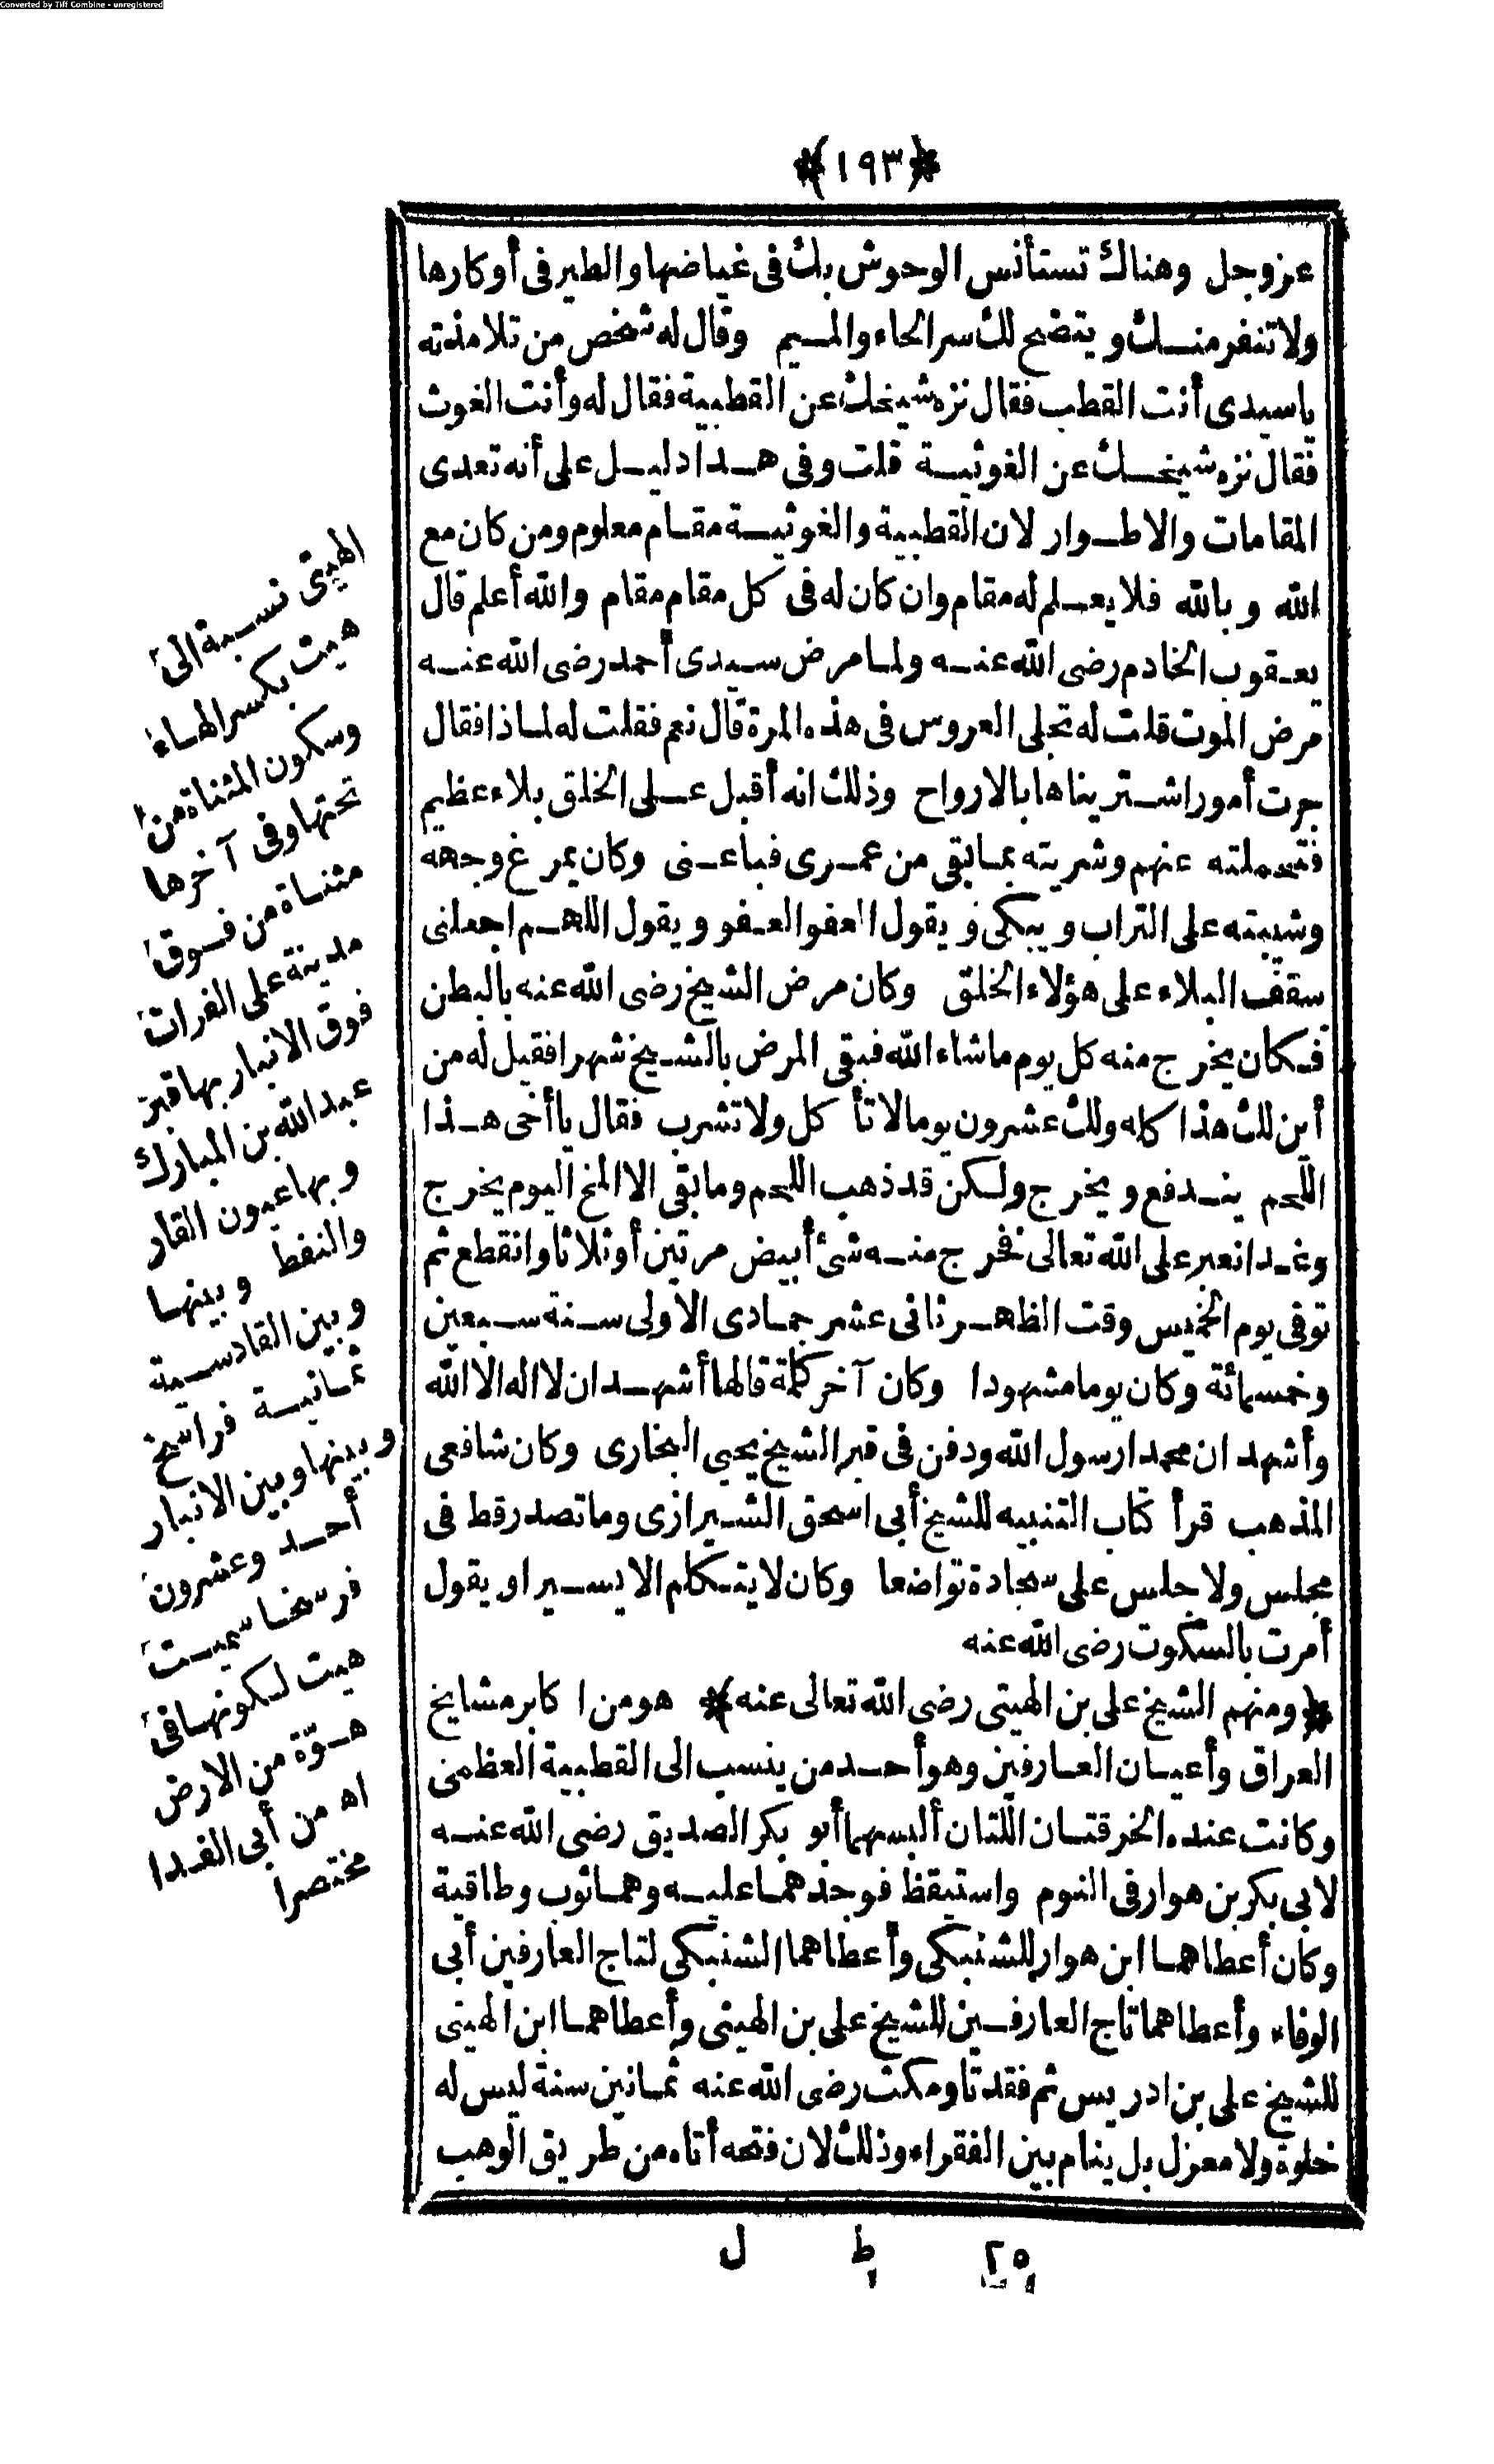 Converted by Tiff Combine - unregistered
﴿١٩٣﴾
عزوجل وهناك تستأنس الوحوش بك فى غياضها والطير فى أوكارها
ولا تنفر منك ويتضح لك سر الحاء والميم وقال له شخص من تلامذته
ياسيدى أنت القطب فقال نزه شيخك عن القطبية فقال له وأنت الغوث
فقال نزه شيخك عن الغوثية قلت وفى هذا دليل على أنه تعدى
المقامات والاطوار لان القطبية والغوثية مقام معلوم ومن كان مع
الله وبالله فلا يعلم له مقام وان كان له فى كل مقام مقام والله أعلم قال
يعقوب الخادم رضى الله عنه ولما مرض سيدى أحمد رضى الله عنه
مرض الموت قلت له تجلى العروس فى هذه المرة قال نعم فقلت له لماذا فقال
جرت أمور اشتريناها بالارواح وذلك انه أقبل على الخلق بلاء عظيم
فتحملته عنهم وشريته بما بقى من عمرى فباعنى وكان يمرغ وجهه
وشيبته على التراب ويبكى ويقول العفو العفو ويقول اللهم اجعلنى
سقف البلاء على هؤلاء الخلق وكان مرض الشيخ رضى الله عنه بالبطن
فكان يخرج منه كل يوم ماشاء الله فبقى المرض بالشيخ شهرا فقيل له من
أين لك هذا كله ولك عشرون يوما لا تأكل ولا تشرب فقال يا أخى هذا
اللحم يندفع ويخرج ولكن قد ذهب اللحم وما بقى الا المخ اليوم يخرج
وغدا نعبر على الله تعالى فخرج منه شئ أبيض مرتين أو ثلاثا وانقطع ثم
توفى يوم الخميس وقت الظهر ثانى عشر جمادى الاولى سنة سبعين
وخمسمائة وكان يوما مشهودا وكان آخر كلمة قالها أشهد ان لا اله الا الله
وأشهد ان محمدا رسول الله ودفن فى قبر الشيخ يحيى البخارى وكان شافعى
المذهب قرأ كتاب التنبيه للشيخ أبى اسحق الشيرازى وما تصدر قط فى
مجلس ولا جلس على سجادة تواضعا وكان لا يتكلم الا يسيرا ويقول
أمرت بالسكوت رضى الله عنه
﴿ومنهم الشيخ على بن الهيتى رضى الله تعالى عنه﴾ هو من اكابر مشايخ
العراق وأعيان العارفين وهو أحد من ينسب الى القطبية العظمى
وكانت عنده الخرقتان اللتان ألبسهما أبو بكر الصديق رضى الله عنه
لابى بكر بن هوار فى النوم واستيقظ فوجدهما عليه وهما ثوب وطاقية
وكان أعطاهما ابن هوار للشنبكى وأعطاهما الشنبكى لتاج العارفين أبى
الوفاء وأعطاهما تاج العارفين للشيخ على بن الهيتى وأعطاهما ابن الهيتى
للشيخ على بن ادريس ثم فقدتا ومكث رضى الله عنه ثمانين سنة ليس له
خلوة ولا معزل بل ينام بين الفقراء وذلك لان فتحه أتاه من طريق الوهب
٢٥ ط ل
الهيتى نسبة الى
هيت بكسر الهاء
وسكون المثناة من
تحتها وفى آخرها
مثناة من فوق
مدينة على الفرات
فوق الانبار بها قبر
عبد الله بن المبارك
وبها عيون القار
والنفط وبينها
وبين القادسية
ثمانية فراسخ
وبينها وبين الانبار
أحد وعشرون
فرسخا سميت
هيت لكونها فى
هوّة من الارض
اه من أبى الفدا
مختصرا